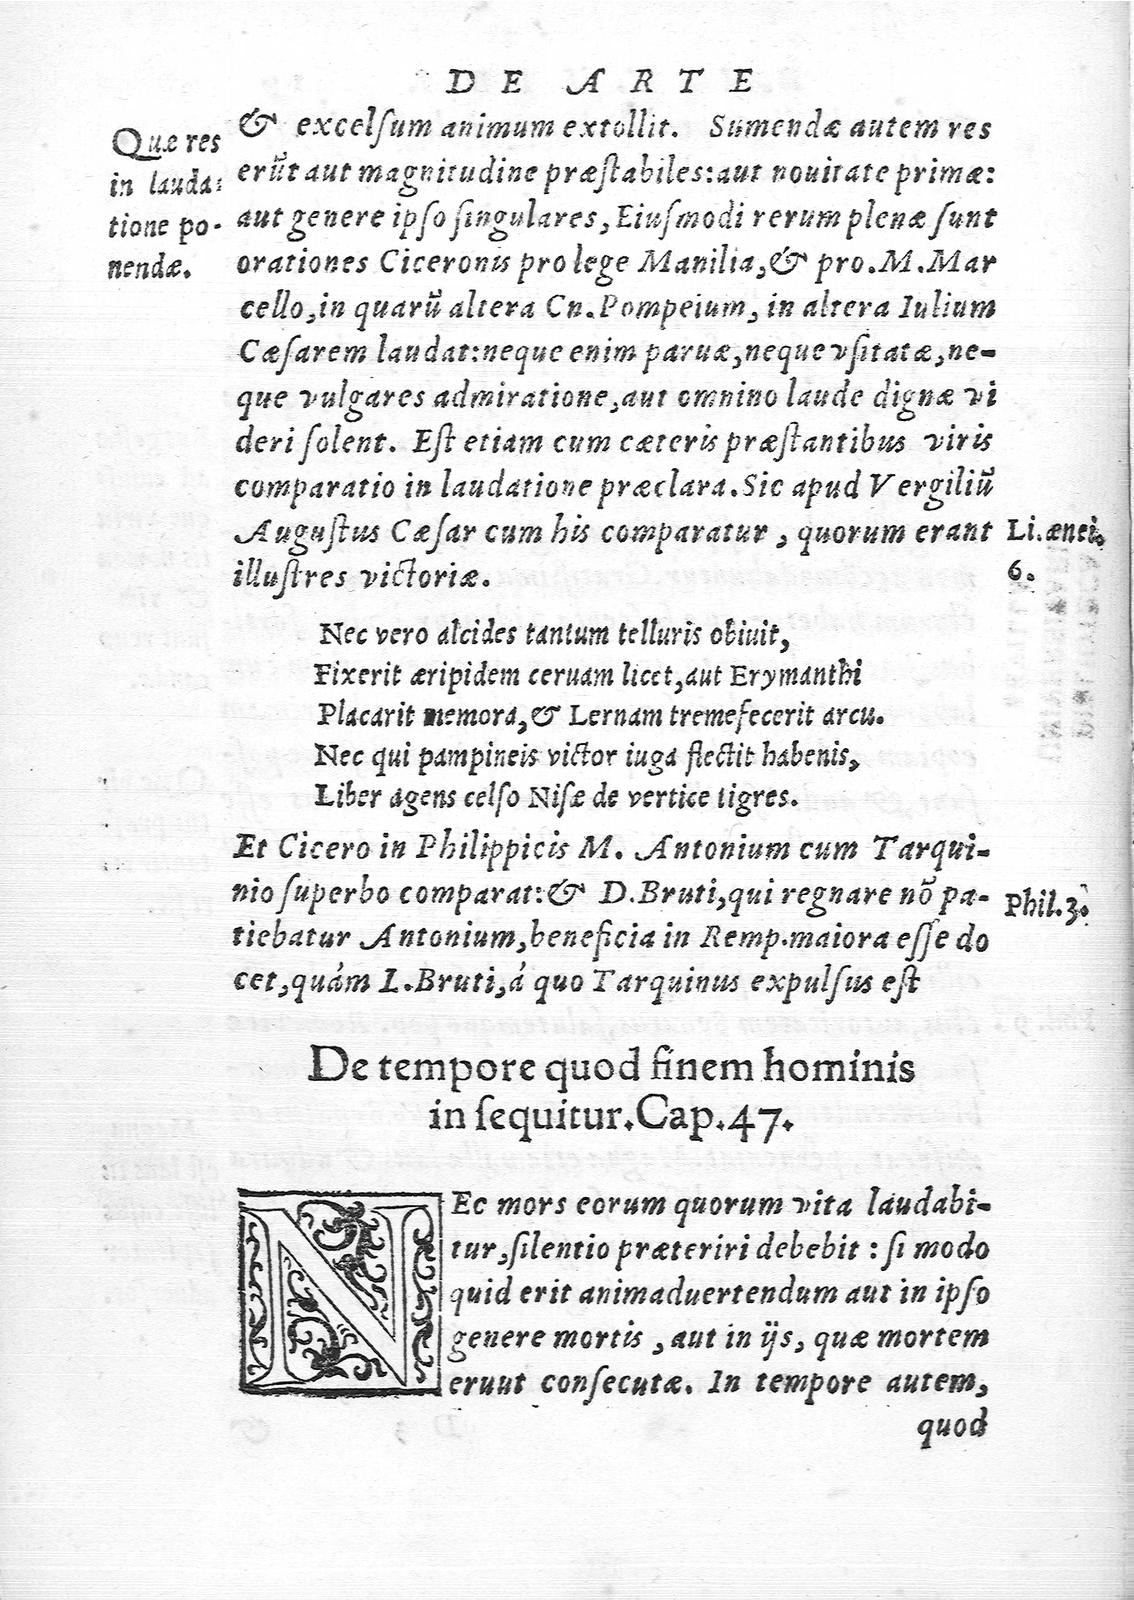 DE ARTE
Quæ res
in lauda-
tione po-
nendæ.
& excelſum animum extollit. Sumendæ autem res
erũt aut magnitudine præſtabiles: aut nouitate primæ:
aut genere ipſo ſingulares, Eiuſmodi rerum plenæ ſunt
orationes Ciceronis pro lege Manilia, & pro. M. Mar
cello, in quarũ altera Cn. Pompeium, in altera Iulium
Cæſarem laudat: neque enim paruæ, neque vſitatæ, ne-
que vulgares admiratione, aut omnino laude dignæ vi
deri ſolent. Eſt etiam cum cæteris præſtantibus viris
comparatio in laudatione præclara. Sic apud Vergiliũ
Auguſtus Cæſar cum his comparatur, quorum erant
illuſtres victoriæ.
Li. ænei.
6.
Nec vero alcides tantum telluris obiuit,
Fixerit æripidem ceruam licet, aut Erymanthi
Placarit nemora, & Lernam tremefecerit arcu.
Nec qui pampineis victor iuga flectit habenis,
Liber agens celſo Niſæ de vertice tigres.
Et Cicero in Philippicis M. Antonium cum Tarqui-
nio ſuperbo comparat: & D. Bruti, qui regnare nõ pa-
tiebatur Antonium, beneficia in Remp. maiora eſſe do
cet, quám L. Bruti, á quo Tarquinus expulſus eſt
Phil. 3.
De tempore quod finem hominis
in ſequitur. Cap. 47.
NEc mors eorum quorum vita laudabi-
tur, ſilentio præteriri debebit: ſi modo
quid erit animaduertendum aut in ipſo
genere mortis, aut in ijs, quæ mortem
eruut conſecutæ. In tempore autem,
quod